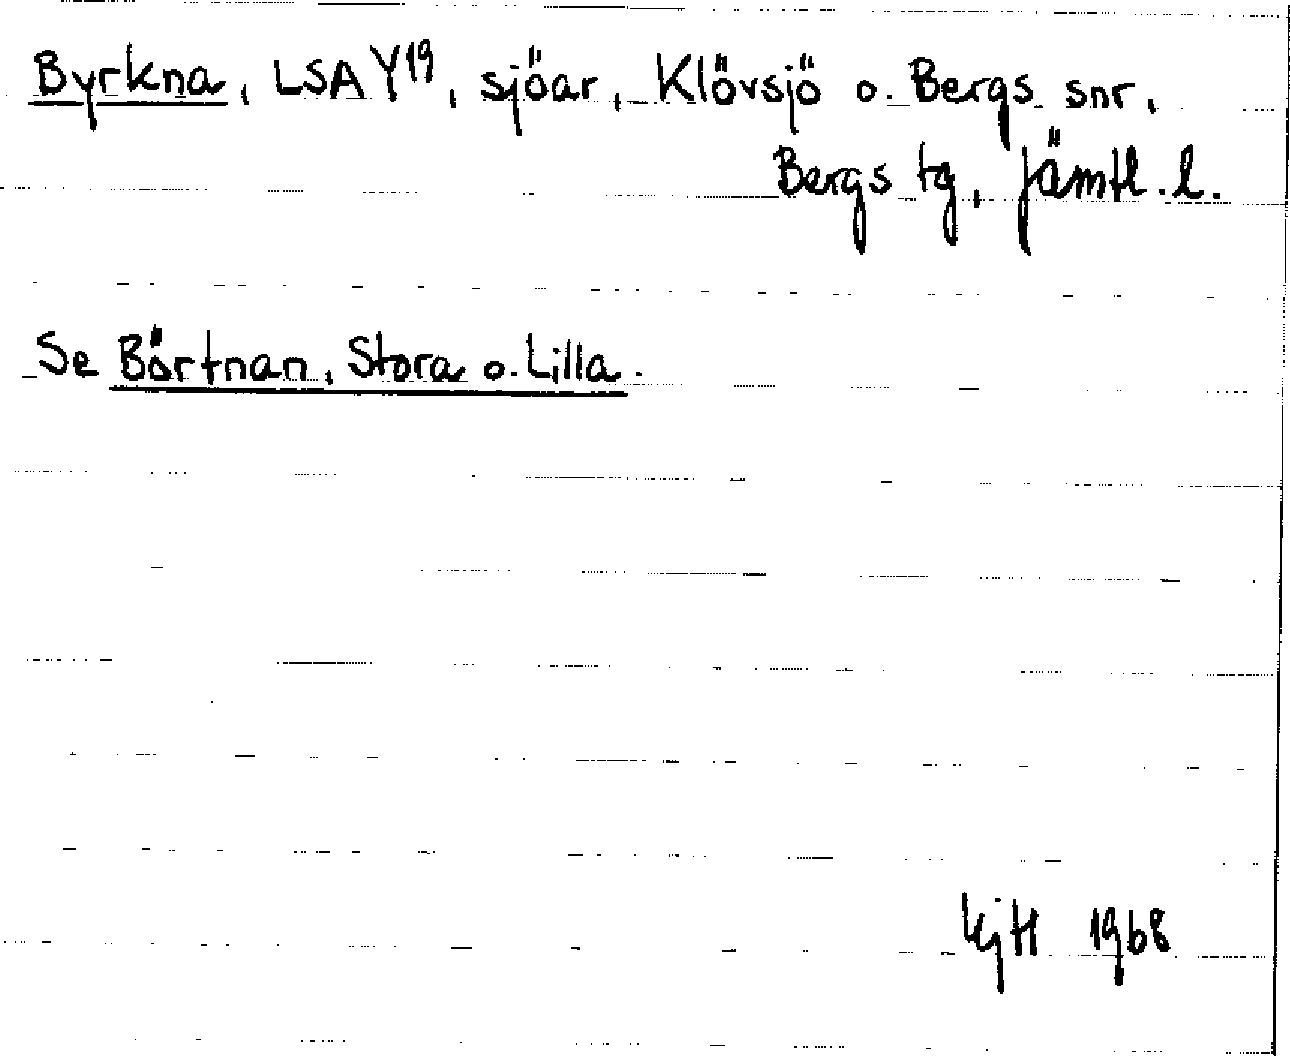 Byrkna, LSA Y19, sjöar, Klövsjö o. Bergs snr,
Bergs tg, Jämtl. l.
Se Börtnan, Stora o. Lilla.
KjH 1968